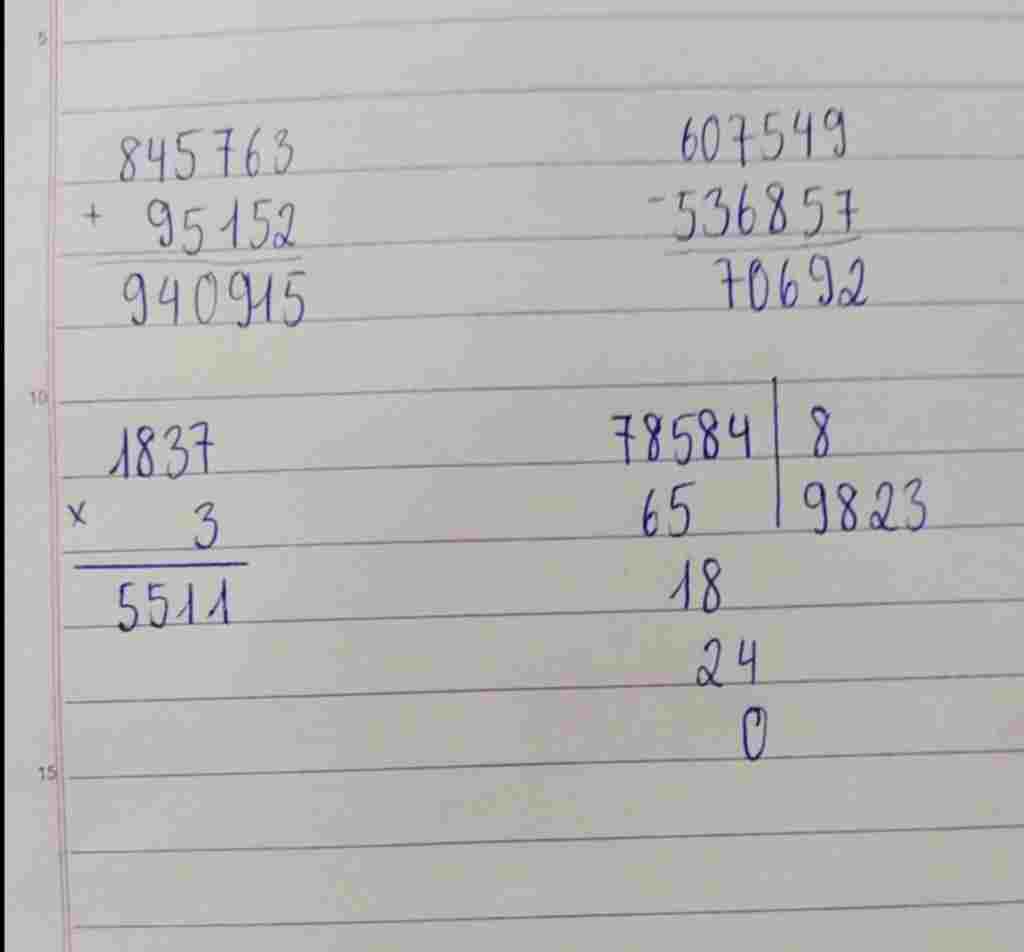 5
845763
+ 95152
940915
607549
- 536857
70692
10
1837
x 3
5511
78584 | 8
65 9823
18
24
0
15